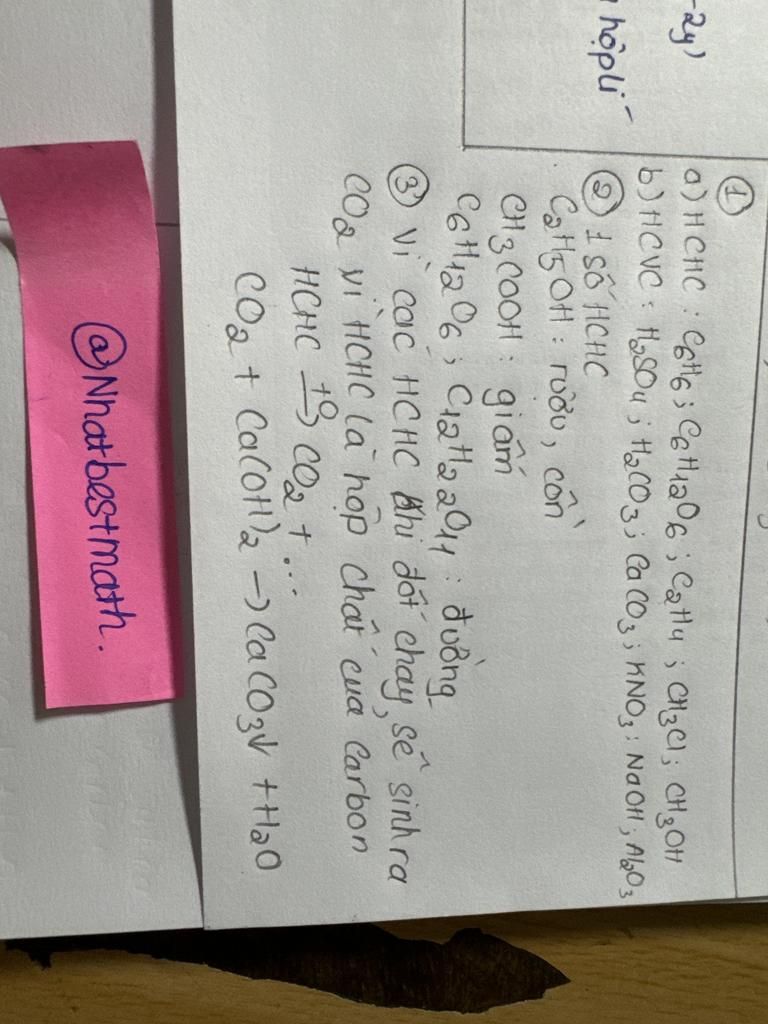 -2y)
hộp lí
①
a) HCHC : C6H6 ; C6H12O6 ; C2H4 ; CH3Cl ; CH3OH
b) HCVC : H2SO4 ; H2CO3 ; CaCO3 ; KNO3 ; NaOH ; Al2O3
② 1 số HCHC
C2H5OH : rượu, cồn
CH3COOH : giấm
C6H12O6 ; C12H22O11 : đường
③ Vì các HCHC khi đốt cháy, sẽ sinh ra
CO2 vì HCHC là hợp chất của carbon
HCHC +O→ CO2 + ...
CO2 + Ca(OH)2 → CaCO3↓ + H2O
@Nhatbestmath.